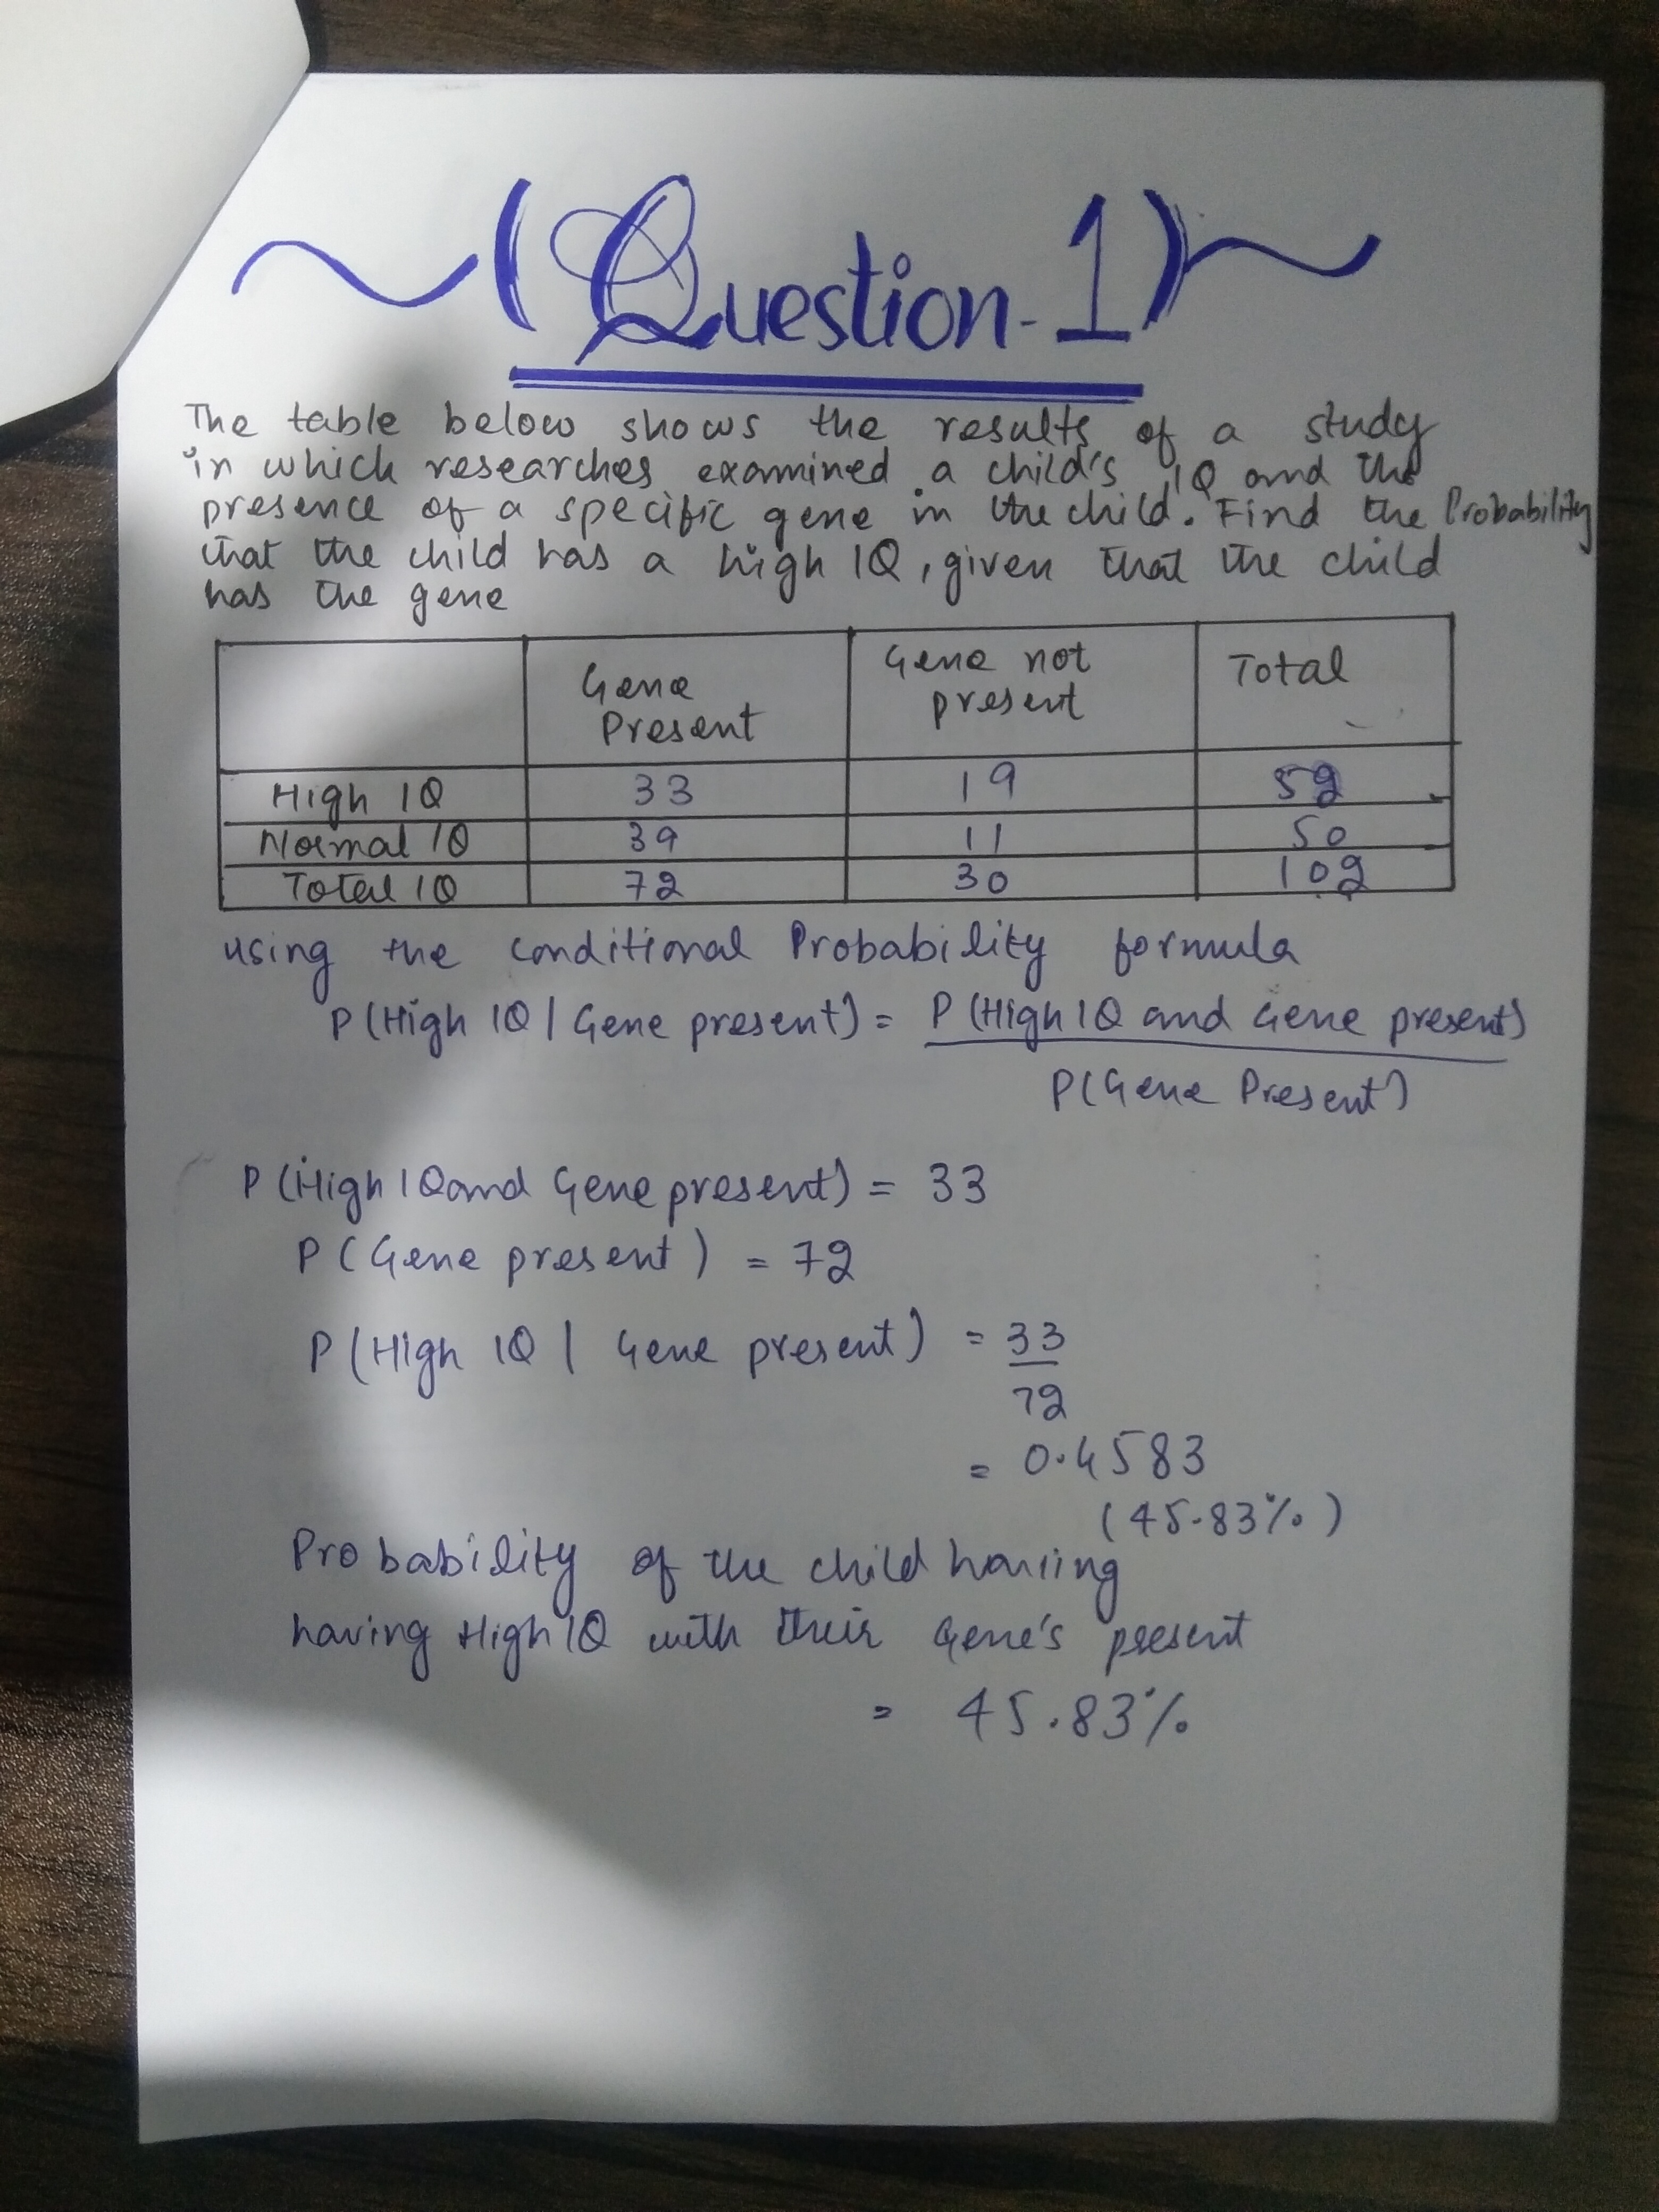 ~(Question-1)~
The table below shows the results of a study
in which researches examined a child's IQ and the
presence of a specific gene in the child. Find the Probability
that the child has a high IQ, given that the child
has the gene
Gene Present Gene not present Total
High IQ 33 19 52
Normal IQ 39 11 50
Total IQ 72 30 102
using the conditional Probability formula
P(High IQ | Gene present) = P(High IQ and Gene present)
P(Gene Present)
P(High IQ and Gene present) = 33
P(Gene present) = 72
P(High IQ | Gene present) = 33
72
= 0.4583
(45.83%)
Probability of the child having
having High IQ with their Gene's present
= 45.83%